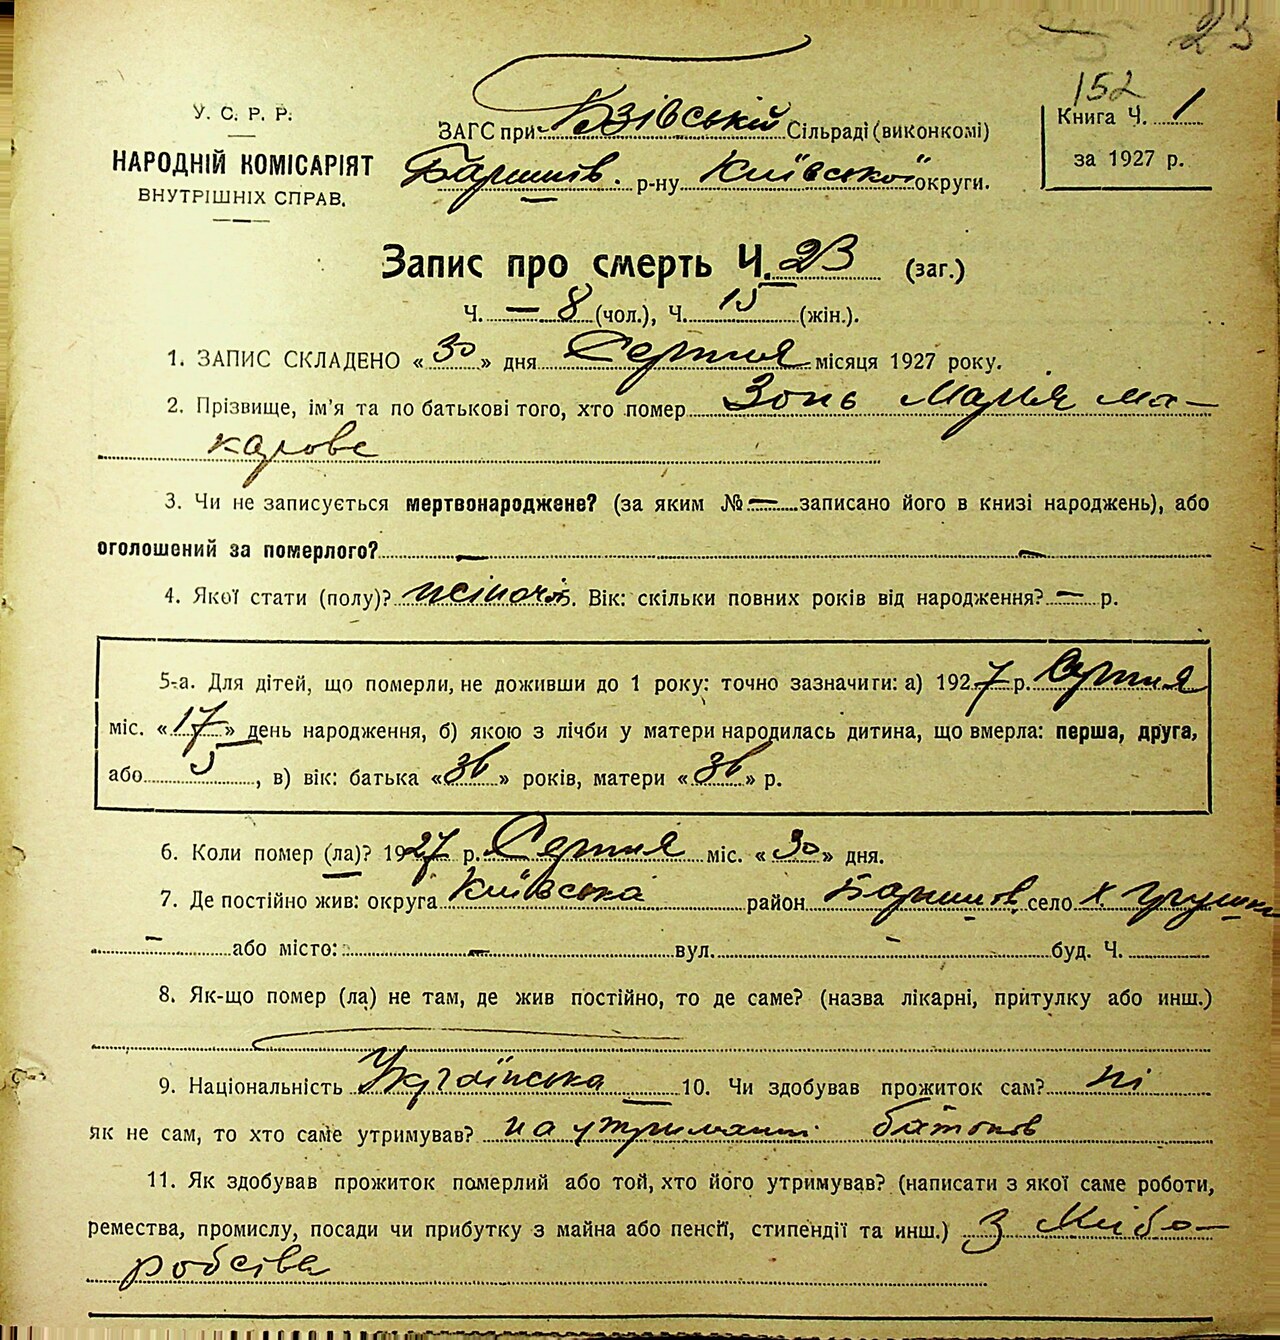 23
152
У. С. Р. Р.
НАРОДНІЙ КОМІСАРІЯТ
ВНУТРІШНІХ СПРАВ.
ЗАГС при Бзівській Сільраді (виконкомі)
Баришів. р-ну Київської округи.
Книга Ч. 1
за 1927 р.
Запис про смерть Ч. 23 (заг.)
Ч. — 8 (чол.), Ч. 15 (жін.).
1. ЗАПИС СКЛАДЕНО «30» дня Серпня місяця 1927 року.
2. Прізвище, ім'я та по батькові того, хто помер Зонь Марія Ма-
карове
3. Чи не записується мертвонароджене? (за яким № — записано його в книзі народжень), або
оголошений за померлого? — —
4. Якої стати (полу)? жіночої 5. Вік: скільки повних років від народження? — р.
5-а. Для дітей, що померли, не доживши до 1 року: точно зазначити: а) 1927 р. Серпня
міс. «17» день народження, б) якою з лічби у матери народилась дитина, що вмерла: перша, друга,
або 5, в) вік: батька «36» років, матери «36» р.
6. Коли помер (ла)? 1927 р. Серпня міс. «30» дня.
7. Де постійно жив: округа Київська район Баришів. село х
— або місто: — вул. — буд. Ч.
8. Як-що помер (ла) не там, де жив постійно, то де саме? (назва лікарні, притулку або инш.)
9. Національність Українська 10. Чи здобував прожиток сам? ні
як не сам, то хто саме утримував? на утриманні батьків
11. Як здобував прожиток померлий або той, хто його утримував? (написати з якої саме роботи,
ремества, промислу, посади чи прибутку з майна або пенсії, стипендії та инш.) З хлібо-
робства